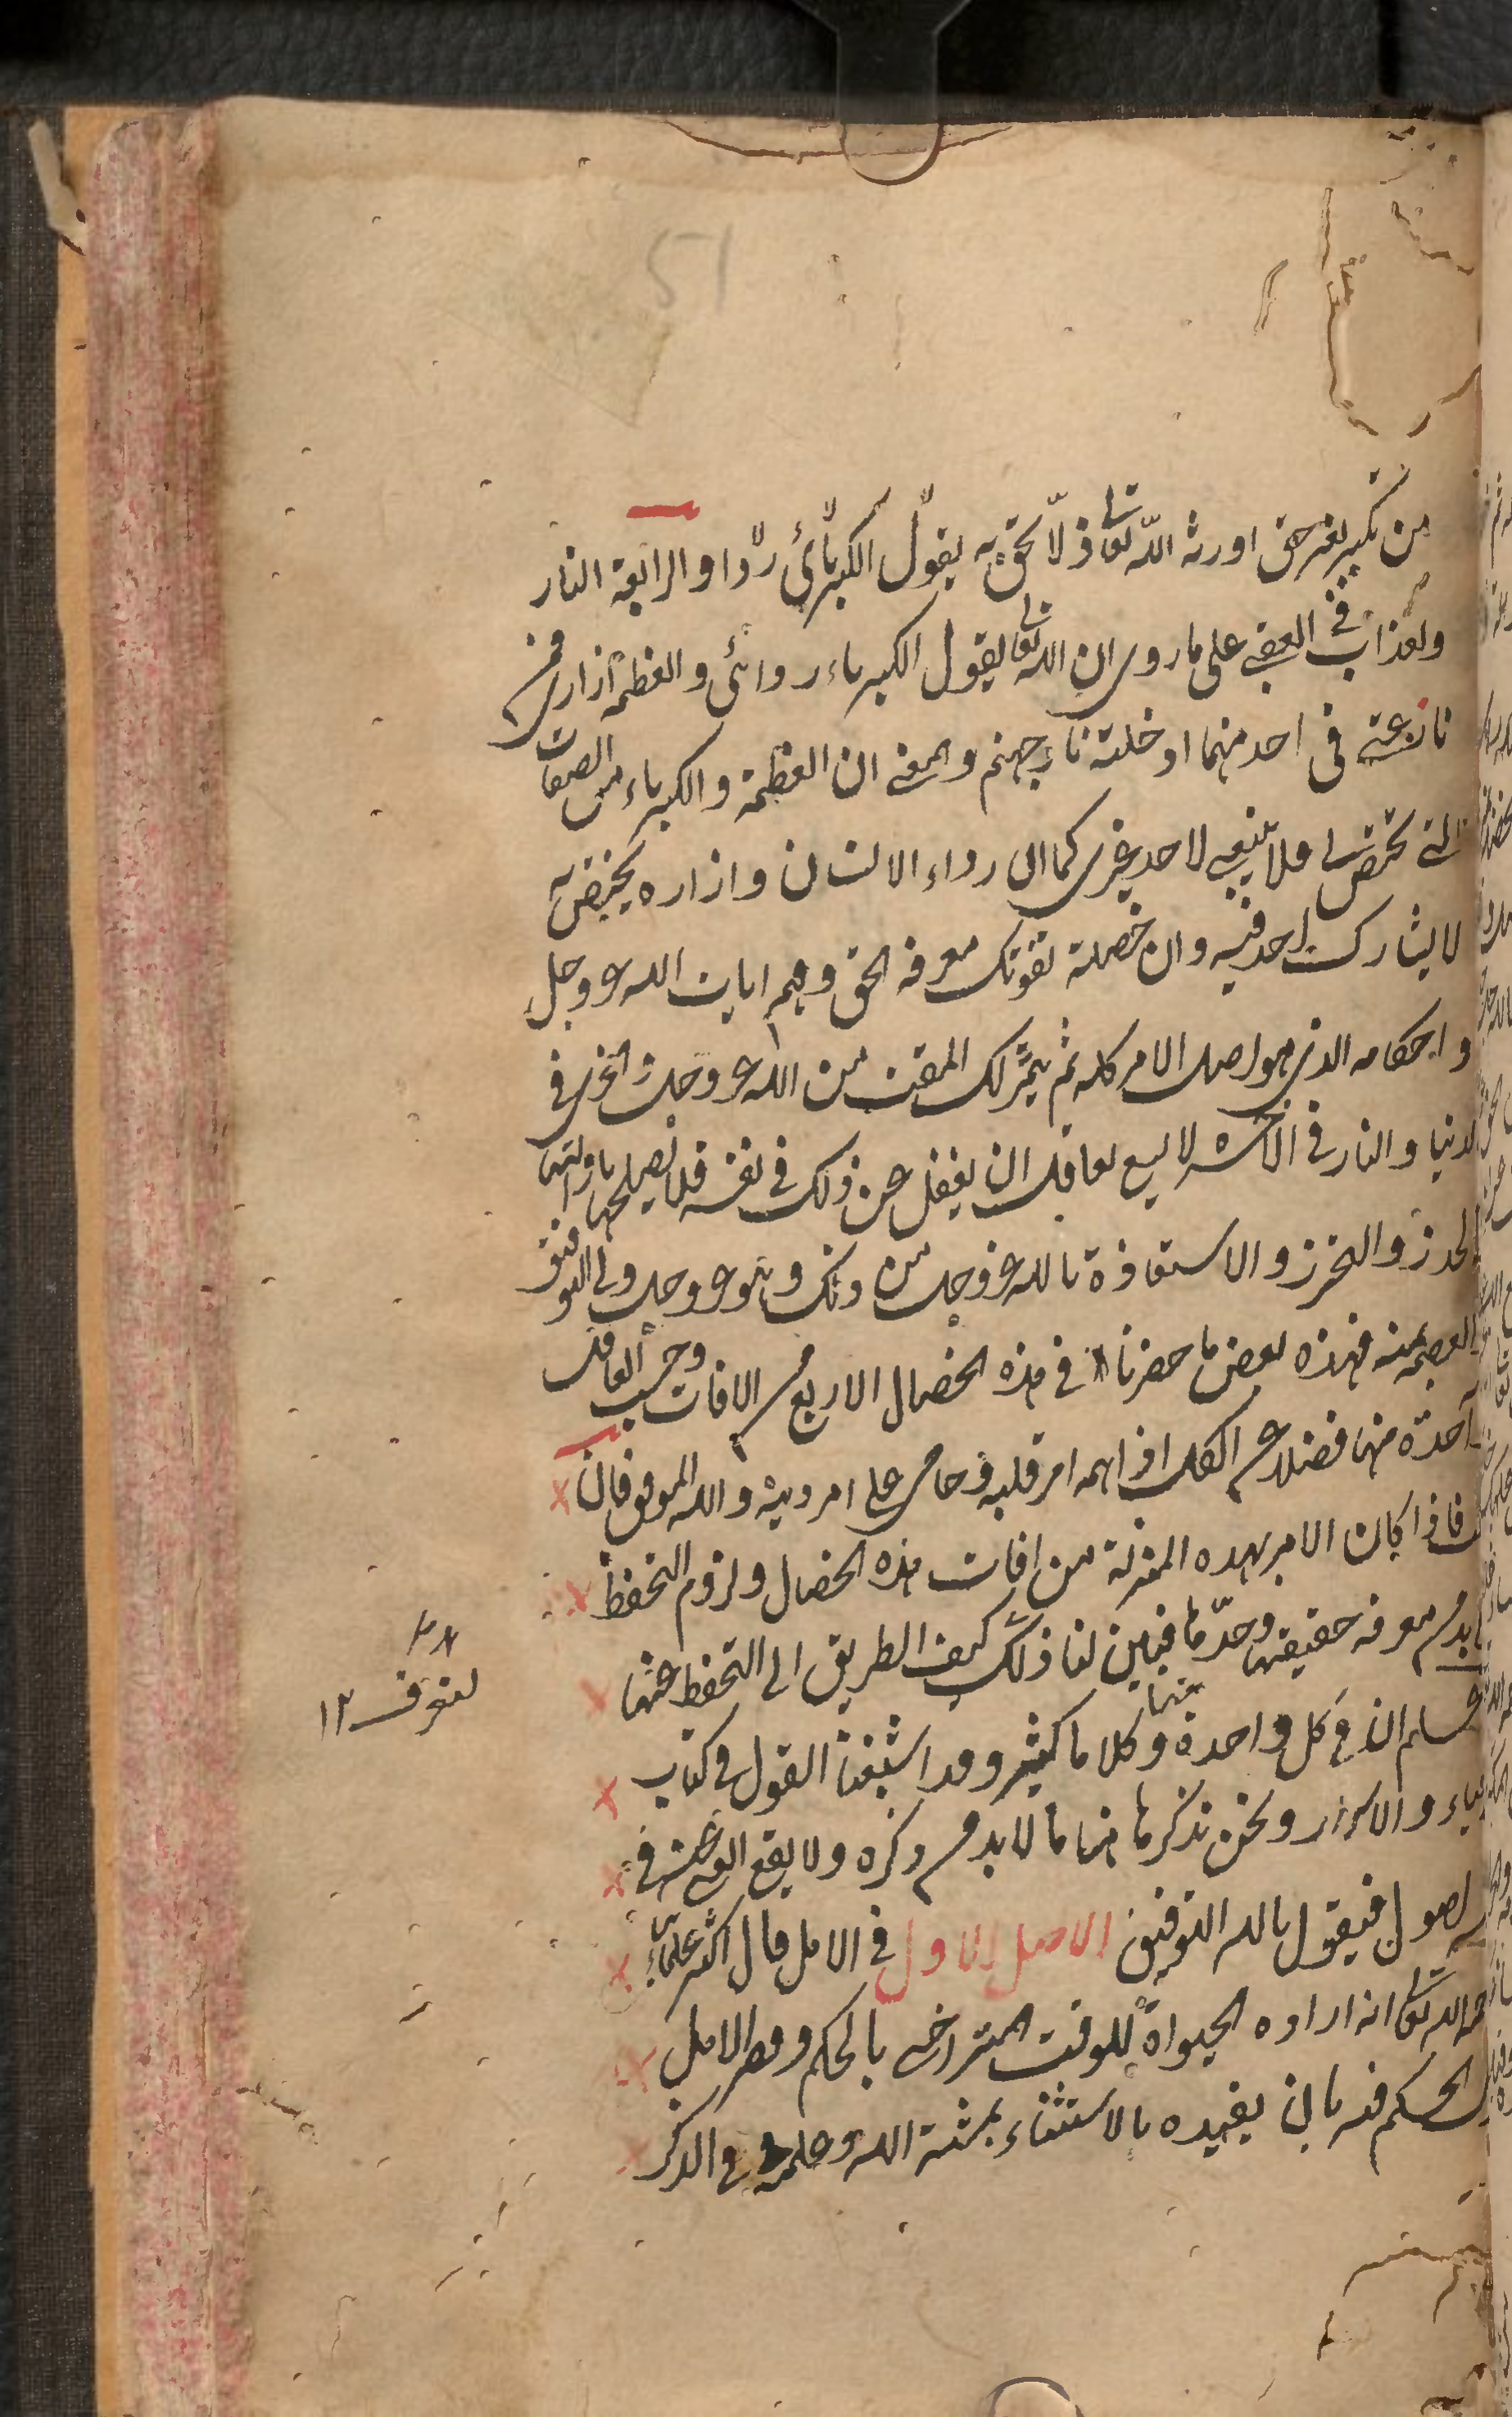 51
من تكبر بغير حق اورثه الله تعالى ذلّا بحق به يقول الكبريائى ردا و الرابعة النار
ولعذاب في العقبى على ما روى ان الله تعالى يقول الكبرياء ردائى والعظمة ازارى فمن
نازعته فى احد منهما ادخلته نار جهنم والمعنى ان العظمة والكبرياء من الصفات
التى تختص لى ولا ينبغى لاحد غيرى كما ان رداء الانسان وازاره يختص به
لا يشارك احد فيه وان خصلة تفوتك معرفة الحق وفهم ايات الله عز وجل
واحكامه الذى هو اصل الامر كله ثم يثمر لك المقت من الله عز وجل والخزى فى
الدنيا والنار فى الاخرة لا يسع لعاقل ان يغفل عن ذلك فى نفسه فلا يصلحها بازالتها
الحذر والتحرز والاستعاذة بالله عز وجل من ذلك وهو عز وجل ولى التوفيق
العصمة منه فهذه بعض ما حضرنا فى هذه الخصال الاربع من الافات وحسب العاقل
واحدة منها فضلا عن الكل اذا اهمه امر قلبه وحامى على امر دينه والله الموفق فان
قلت فاذا كان الامر بهذه المنزلة من افات هذه الخصال ولزوم التحفظ
لا بد من معرفة حقيقتها وحدّها فبين لنا ذلك كيف الطريق الى التحفظ عنها
فاعلم ان فى كل واحدة منها كلاما كثيرا وقد اشبعنا القول فى كتاب
الاحياء والاسرار ونحن نذكرها هنا ما لا بد من ذكره ولا يقع الغنى عنه فى
الاصول فيقول بالله التوفيق الاصل الاول فى الامل قال اكثر علمائنا
رحمه الله تعالى انه ارادة الحيوة للوقت المتراخى بالحكم وقصر الامل
ترك الحكم فيه بان يقيده بالاستثناء بمشية الله وعلمه فى الذكر
لتعرف ١٢